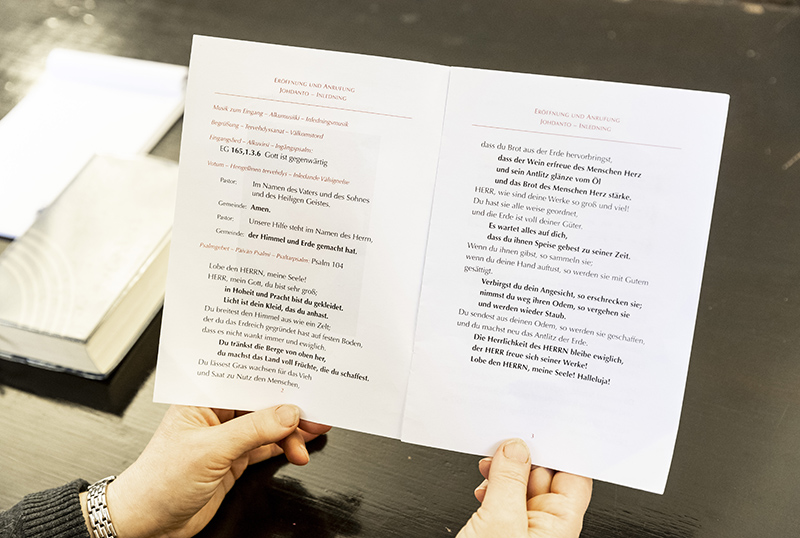 ERÖFFNUNG UND ANRUFUNG
JOHDANTO – INLEDNING
Musik zum Eingang – Alkumusiikki – Inledningsmusik
Begrüßung – Tervehdyssanat – Välkomstord
Eingangslied – Alkuvirsi – Ingångspsalm:
EG 165,1.3.6 Gott ist gegenwärtig
Votum – Hengellinen tervehdys – Inledande Välsignelse
Pastor: Im Namen des Vaters und des Sohnes
und des Heiligen Geistes.
Gemeinde: Amen.
Pastor: Unsere Hilfe steht im Namen des Herrn,
Gemeinde: der Himmel und Erde gemacht hat.
Psalmgebet – Päivän Psalmi – Psaltarpsalm: Psalm 104
Lobe den HERRN, meine Seele!
HERR, mein Gott, du bist sehr groß;
in Hoheit und Pracht bist du gekleidet.
Licht ist dein Kleid, das du anhast.
Du breitest den Himmel aus wie ein Zelt;
der du das Erdreich gegründet hast auf festen Boden,
dass es nicht wankt immer und ewiglich.
Du tränkst die Berge von oben her,
du machst das Land voll Früchte, die du schaffest.
Du lässest Gras wachsen für das Vieh
und Saat zu Nutz den Menschen,
2
ERÖFFNUNG UND ANRUFUNG
JOHDANTO – INLEDNING
dass du Brot aus der Erde hervorbringst,
dass der Wein erfreue des Menschen Herz
und sein Antlitz glänze vom Öl
und das Brot des Menschen Herz stärke.
HERR, wie sind deine Werke so groß und viel!
Du hast sie alle weise geordnet,
und die Erde ist voll deiner Güter.
Es wartet alles auf dich,
dass du ihnen Speise gebest zu seiner Zeit.
Wenn du ihnen gibst, so sammeln sie;
wenn du deine Hand auftust, so werden sie mit Gutem
gesättigt.
Verbirgst du dein Angesicht, so erschrecken sie;
nimmst du weg ihren Odem, so vergehen sie
und werden wieder Staub.
Du sendest aus deinen Odem, so werden sie geschaffen,
und du machst neu das Antlitz der Erde.
Die Herrlichkeit des HERRN bleibe ewiglich,
der HERR freue sich seiner Werke!
Lobe den HERRN, meine Seele! Halleluja!